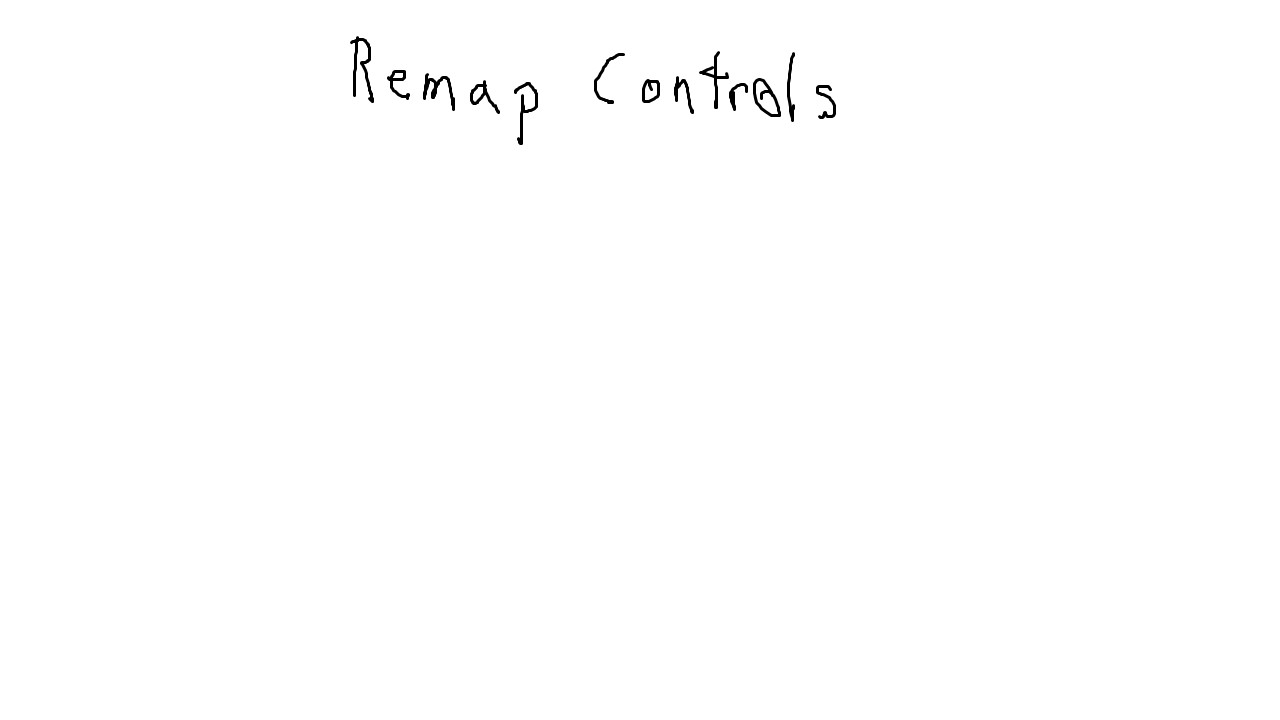 Remap Controls